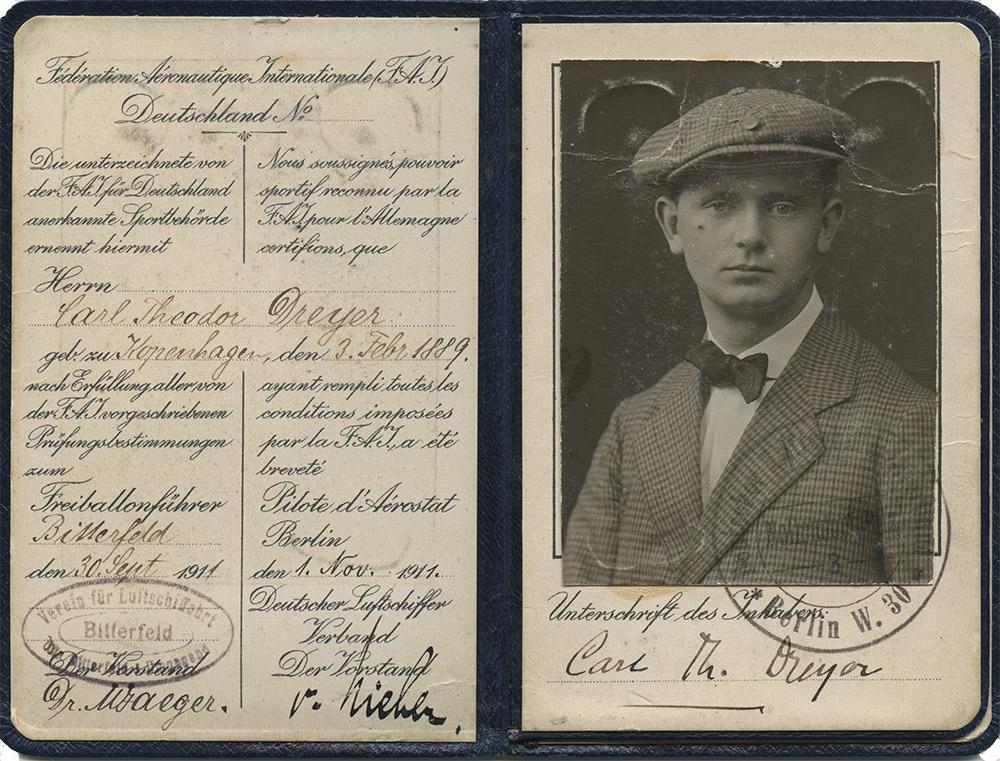 Fédération Aéronautique Internationale (F.A.I.)
Deutschland No
Die unterzeichnete von
der F.A.I. für Deutschland
anerkannte Sportbehörde
ernennt hiermit
Nous soussignés, pouvoir
sportif reconnu par la
F.A.I. pour l'Allemagne
certifions, que
Herrn
Carl Theodor Dreyer
geb. zu Kopenhagen, den 3. Febr 1889.
nach Erfüllung aller von
der F.A.I. vorgeschriebenen
Prüfungsbestimmungen
zum
Freiballonführer
Bitterfeld
den 30. Sept. 1911
Verein für Luftschiffahrt
Bitterfeld
Der Vorstand
Dr.
ayant rempli toutes les
conditions imposées
par la F.A.I., a été
breveté
Pilote d'Aérostat
Berlin
den 1. Nov. 1911.
Deutscher Luftschiffer
Verband
Der Vorstand
v.
Unterschrift des Inhabers:
Carl Th. Dreyer
* Berlin W. 30